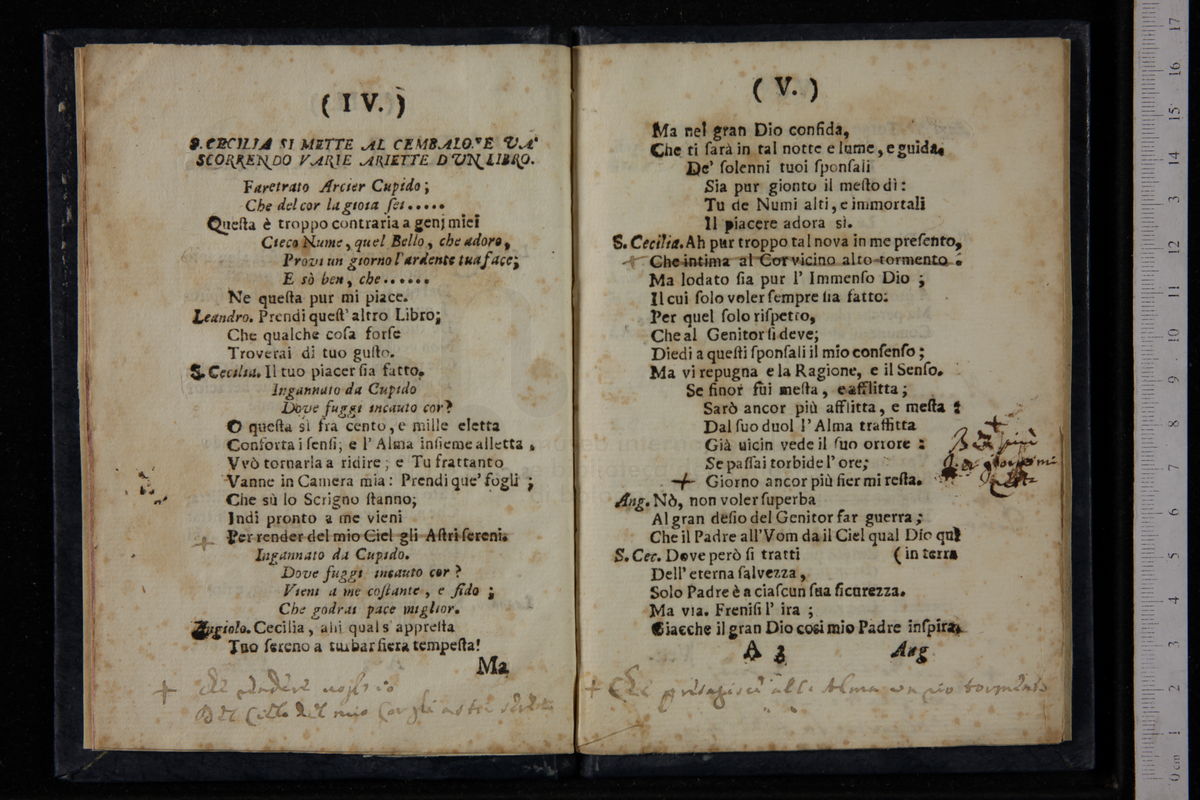 ( IV. )
S. CECILIA SI METTE AL CEMBALO. E VA'
SCORRENDO VARIE ARIETTE D'UN LIBRO.
Faretrato Arcier Cupido ;
Che del cor la gioia sei.....
Queſta è troppo contraria a genj miei
Cieco Nume, quel Bello, che adoro,
Provi un giorno l'ardente tua face;
E sò ben, che......
Ne queſta pur mi piace.
Leandro. Prendi queſt' altro Libro;
Che qualche coſa forſe
Troverai di tuo guſto.
S. Cecilia. Il tuo piacer ſia fatto.
Ingannato da Cupido
Dove fuggi incauto cor?
O queſta si fra cento, e mille eletta
Conforta i ſenſi; e l' Alma inſieme alletta .
Vvò tornarla a ridire ; e Tu frattanto
Vanne in Camera mia : Prendi que' fogli ;
Che sù lo Scrigno ſtanno;
Indi pronto a me vieni
+ Per render del mio Ciel gli Aſtri ſereni.
Ingannato da Cupido.
Dove fuggi incauto cor ?
Vieni a me coſtante , e fido ;
Che godrai pace miglior.
Angiolo. Cecilia , ahi qual s' appreſta
Tuo ſereno a turbar fiera tempeſta!
Ma
+ Che rendere
Del Cielo del mio Cor gli astri sereni
( V. )
Ma nel gran Dio confida,
Che ti ſarà in tal notte e lume, e guida.
De' ſolenni tuoi ſponſali
Sia pur gionto il meſto dì :
Tu de Numi alti, e immortali
Il piacere adora sì.
S. Cecilia. Ah pur troppo tal nova in me preſento,
+ Che intima al Cor vicino alto tormento :
Ma lodato ſia pur l' Immenſo Dio ;
Il cui ſolo voler ſempre ſia fatto:
Per quel ſolo riſpetto,
Che al Genitor ſi deve;
Diedi a queſti ſponſali il mio conſenſo ;
Ma vi repugna e la Ragione, e il Senſo.
Se finor fui meſta , e afflitta ;
Sarò ancor più afflitta , e meſta :
Dal ſuo duol l' Alma traffitta
Già uicin vede il ſuo orrore :
Se paſſai torbide l' ore;
+ Giorno ancor più fier mi reſta.
+
Ang. Nò, non voler ſuperba
Al gran deſio del Genitor far guerra ;
Che il Padre all' Vom da il Ciel qual Dio quì
S. Cec. Dove però ſi tratti ( in terra
Dell' eterna ſalvezza ,
Solo Padre è a ciaſcun ſua ſicurezza.
Ma via. Freniſi l' ira ;
Giacche il gran Dio cosi mio Padre inſpira.
A 3 Ang
+ Che presagisce all' Alma un rio tormento